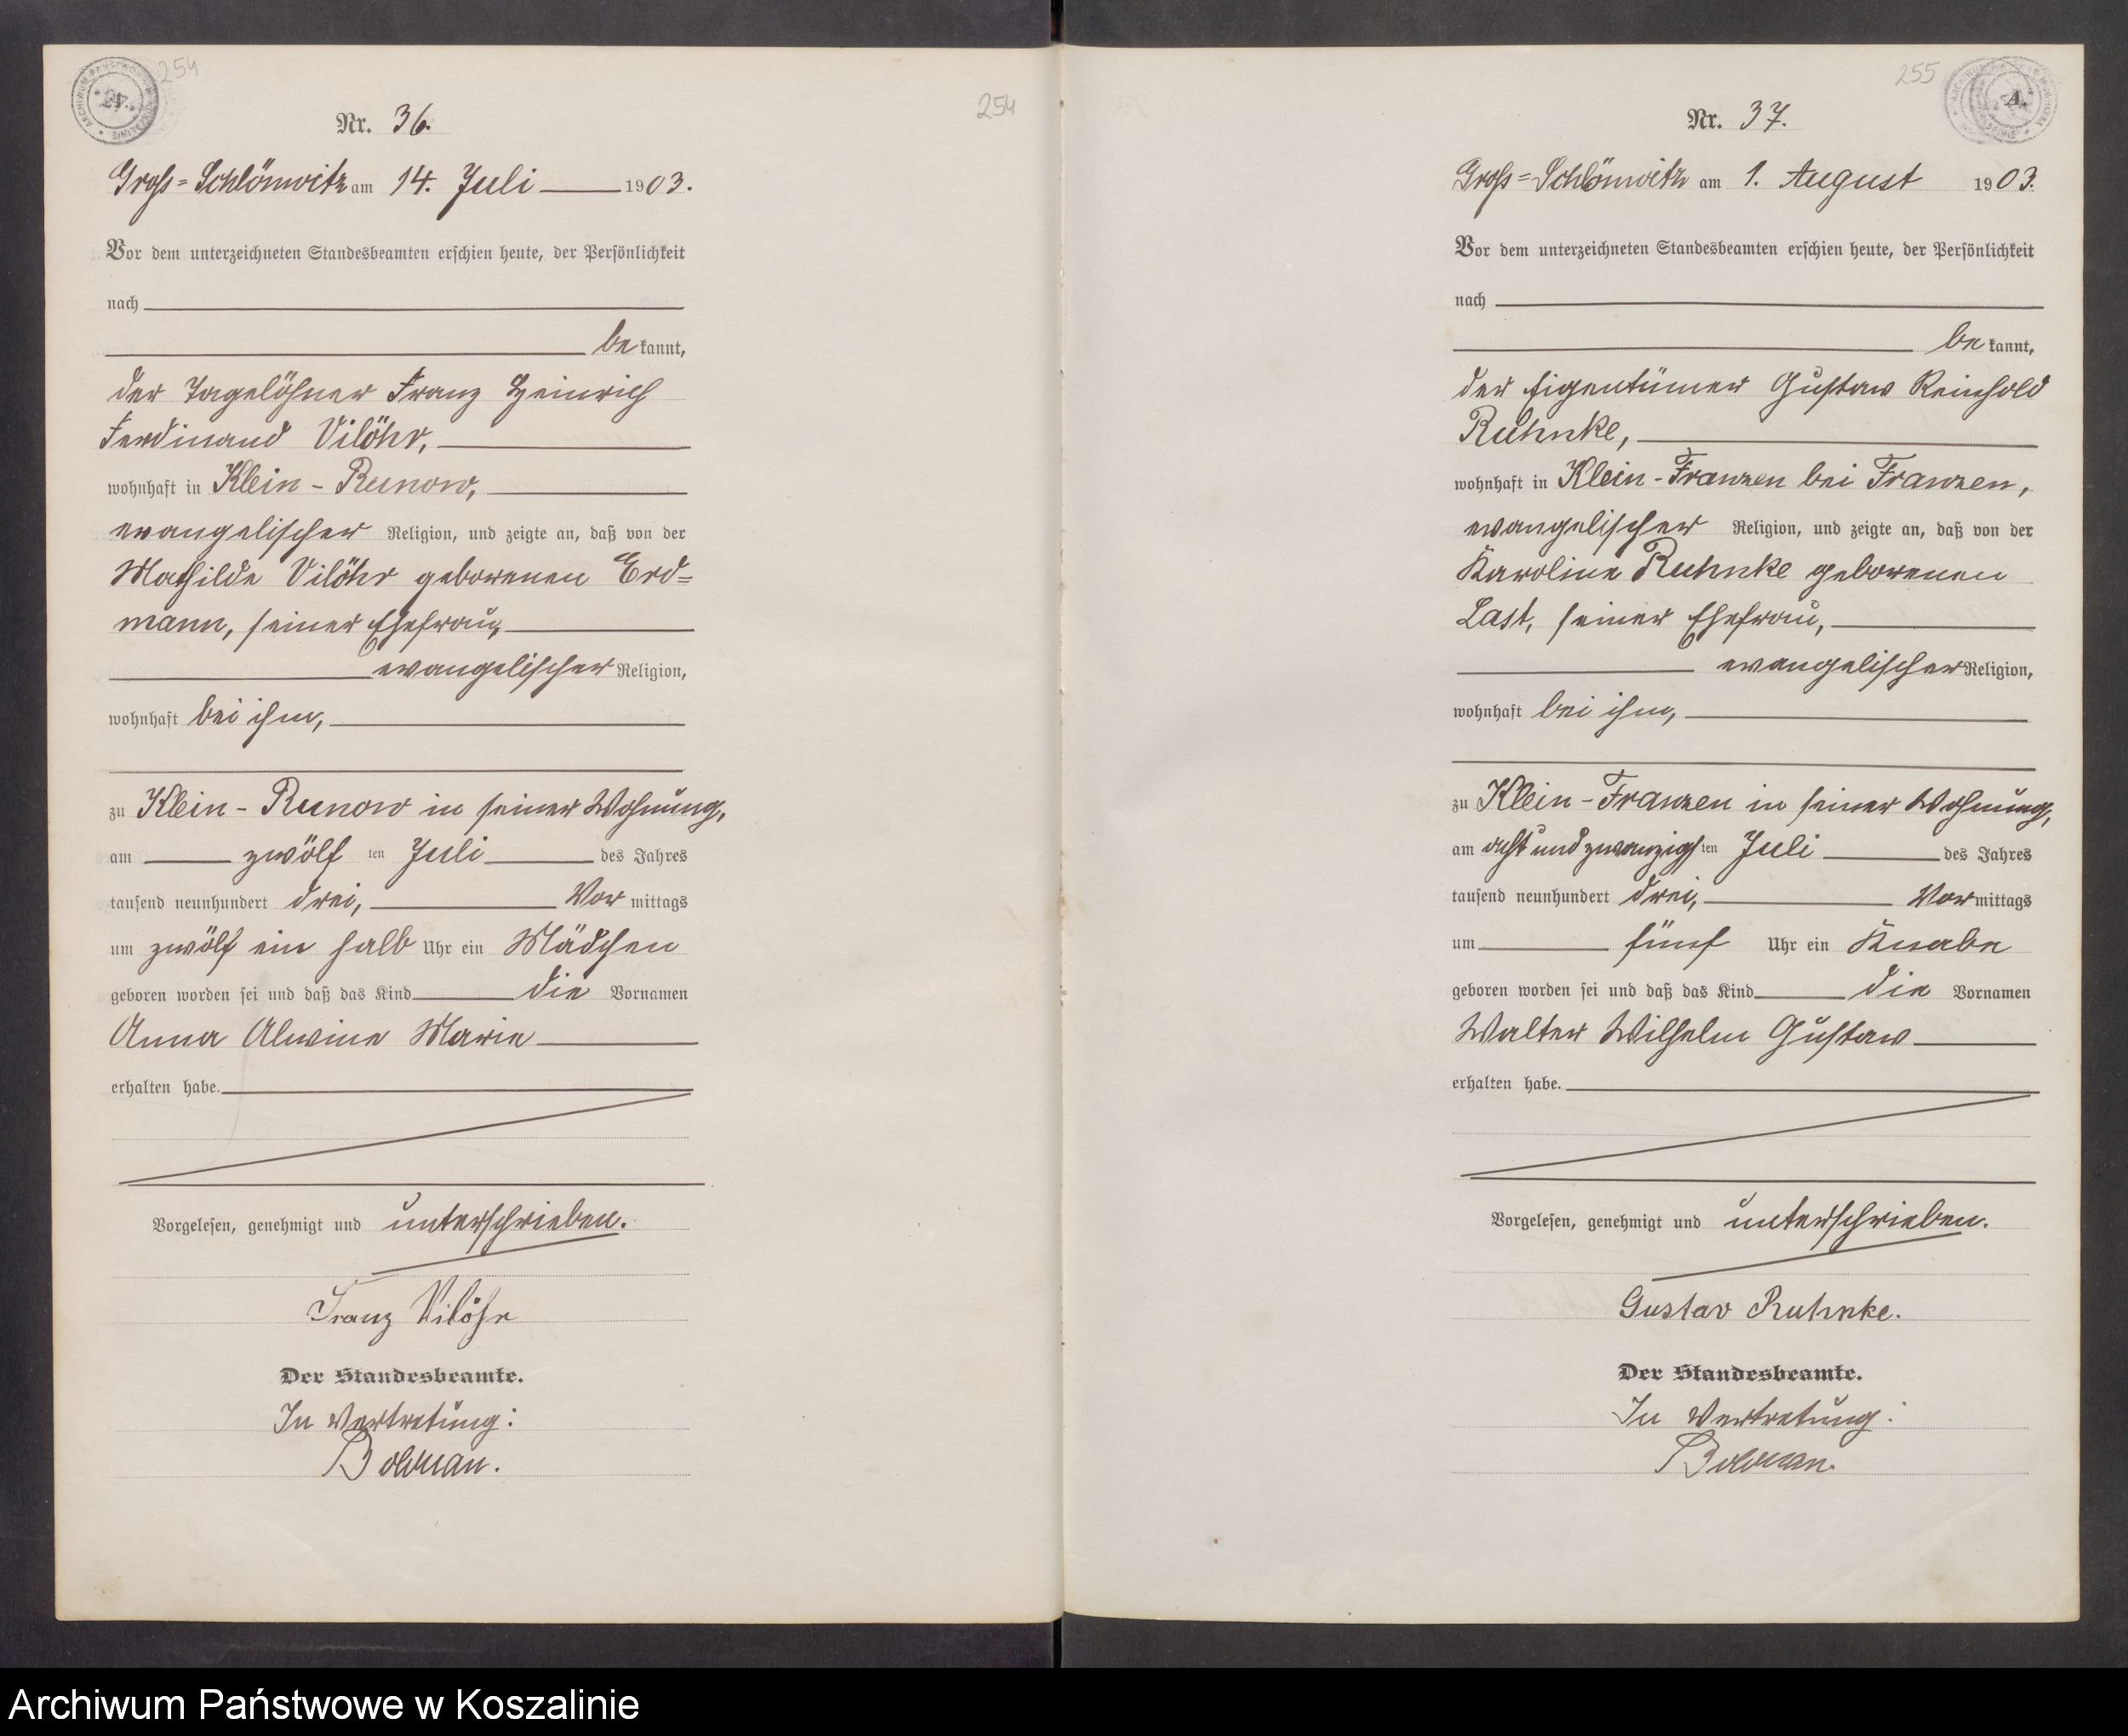 254
254
Nr. 36.
Gross=Schlönwitz am 14. Juli 1903.
Vor dem unterzeichneten Standesbeamten erschien heute, der Persönlichkeit
nach
be kannt,
der Tagelöhner Franz Heinrich
Ferdinand Vilöhr,
wohnhaft in Klein - Runow,
evangelischer Religion, und zeigte an, daß von der
Mathilde Vilöhr geborenen Erd=
mann, seiner Ehefrau,
evangelischer Religion,
wohnhaft bei ihm,
zu Klein - Runow in seiner Wohnung,
am zwölf ten Juli des Jahres
tausend neunhundert drei, Vor mittags
um zwölf ein halb Uhr ein Mädchen
geboren worden sei und daß das Kind die Vornamen
Anna Alwine Marie
erhalten habe.
Vorgelesen, genehmigt und unterschrieben.
Franz Vilöhr
Der Standesbeamte.
In Vertretung:
255
Nr. 37.
Gross=Schlönwitz am 1. August 1903.
Vor dem unterzeichneten Standesbeamten erschien heute, der Persönlichkeit
nach
be kannt,
der Eigentümer Gustav Reinhold
Ruhnke,
wohnhaft in Klein - Franzen bei Franzen,
evangelischer Religion, und zeigte an, daß von der
Karoline Ruhnke geborenen
Last, seiner Ehefrau,
evangelischer Religion,
wohnhaft bei ihm,
zu Klein - Franzen in seiner Wohnung,
am acht und zwanzigs ten Juli des Jahres
tausend neunhundert drei, Vor mittags
um fünf Uhr ein Knabe
geboren worden sei und daß das Kind die Vornamen
Walter Wilhelm Gustav
erhalten habe.
Vorgelesen, genehmigt und unterschrieben.
Gustav Ruhnke.
Der Standesbeamte.
In Vertretung:
Archiwum Państwowe w Koszalinie